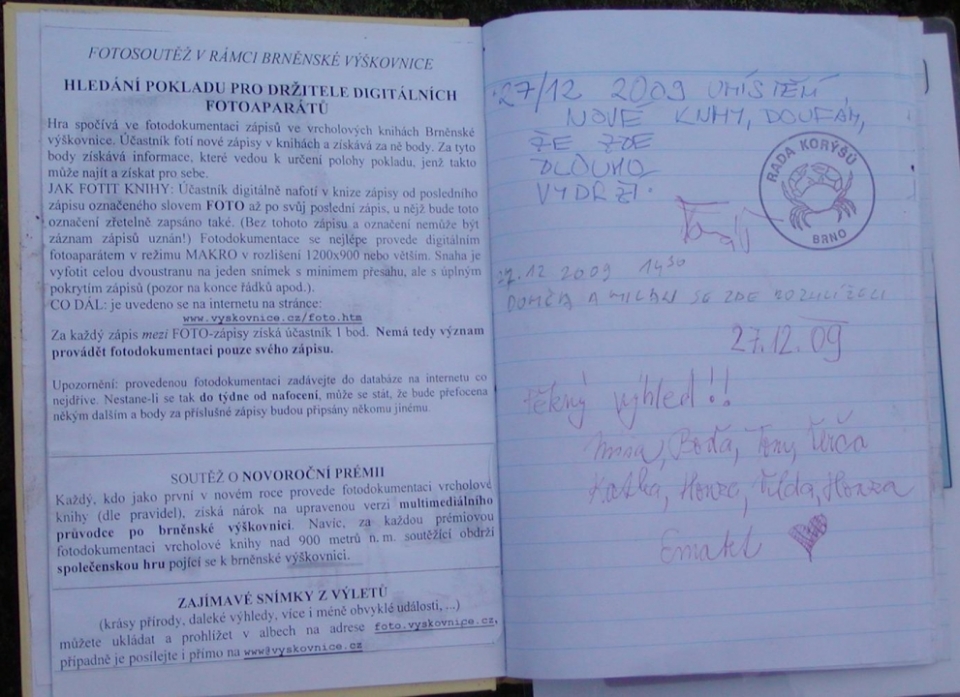 FOTOSOUTĚŽ V RÁMCI BRNĚNSKÉ VÝŠKOVNICE
HLEDÁNÍ POKLADU PRO DRŽITELE DIGITÁLNÍCH
FOTOAPARÁTŮ
Hra spočívá ve fotodokumentaci zápisů ve vrcholových knihách Brněnské
výškovnice. Účastník fotí nové zápisy v knihách a získává za ně body. Za tyto
body získává informace, které vedou k určení polohy pokladu, jenž takto
může najít a získat pro sebe.
JAK FOTIT KNIHY: Účastník digitálně nafotí v knize zápisy od posledního
zápisu označeného slovem FOTO až po svůj poslední zápis, u nějž bude toto
označení zřetelně zapsáno také. (Bez tohoto zápisu a označení nemůže být
záznam zápisů uznán!) Fotodokumentace se nejlépe provede digitálním
fotoaparátem v režimu MAKRO v rozlišení 1200x900 nebo větším. Snaha je
vyfotit celou dvoustranu na jeden snímek s minimem přesahu, ale s úplným
pokrytím zápisů (pozor na konce řádků apod.).
CO DÁL: je uvedeno se na internetu na stránce:
www.vyskovnice.cz/foto.htm
Za každý zápis mezi FOTO-zápisy získá účastník 1 bod. Nemá tedy význam
provádět fotodokumentaci pouze svého zápisu.
Upozornění: provedenou fotodokumentaci zadávejte do databáze na internetu co
nejdříve. Nestane-li se tak do týdne od nafocení, může se stát, že bude přefocena
někým dalším a body za příslušné zápisy budou připsány někomu jinému.
SOUTĚŽ O NOVOROČNÍ PRÉMII
Každý, kdo jako první v novém roce provede fotodokumentaci vrcholové
knihy (dle pravidel), získá nárok na upravenou verzi multimediálního
průvodce po brněnské výškovnici. Navíc, za každou prémiovou
fotodokumentaci vrcholové knihy nad 900 metrů n. m. soutěžící obdrží
společenskou hru pojící se k brněnské výškovnici.
ZAJÍMAVÉ SNÍMKY Z VÝLETŮ
(krásy přírody, daleké výhledy, více i méně obvyklé události, ...)
můžete ukládat a prohlížet v albech na adrese foto.vyskovnice.cz,
případně je posílejte i přímo na www@vyskovnice.cz
27/12 2009 UMÍSTĚNÍ
NOVÉ KNIHY, DOUFÁM,
ŽE ZDE
DLOUHO
VYDRŽÍ.
RADA KORÝŠŮ
BRNO
27.12 2009 1430
A MILAN SE ZDE
27.12.09
Pěkný výhled!!
Boďa, Tony, Terča
Katka, Honza, Honza